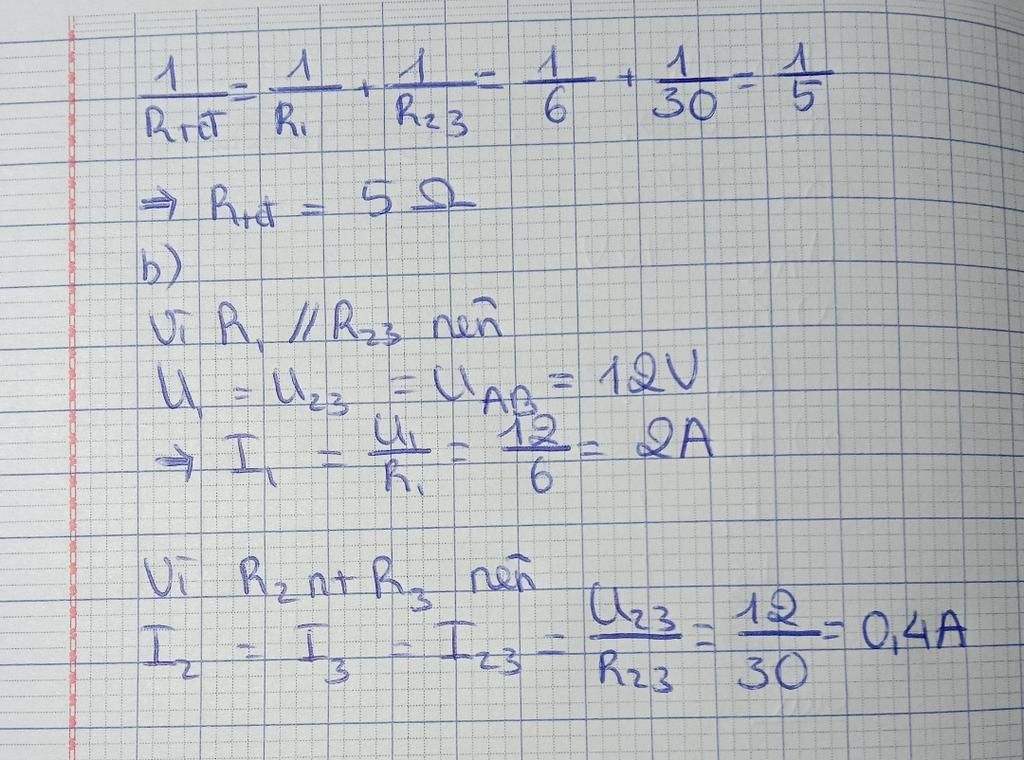 1/Rtđ = 1/R₁ + 1/R₂₃ = 1/6 + 1/30 = 1/5
⇒ Rtđ = 5 Ω
b)
Vì R₁ // R₂₃ nên
U₁ = U₂₃ = U_AB = 12V
→ I₁ = U₁/R₁ = 12/6 = 2A
Vì R₂ nt R₃ nên
I₂ = I₃ = I₂₃ = U₂₃/R₂₃ = 12/30 = 0,4A